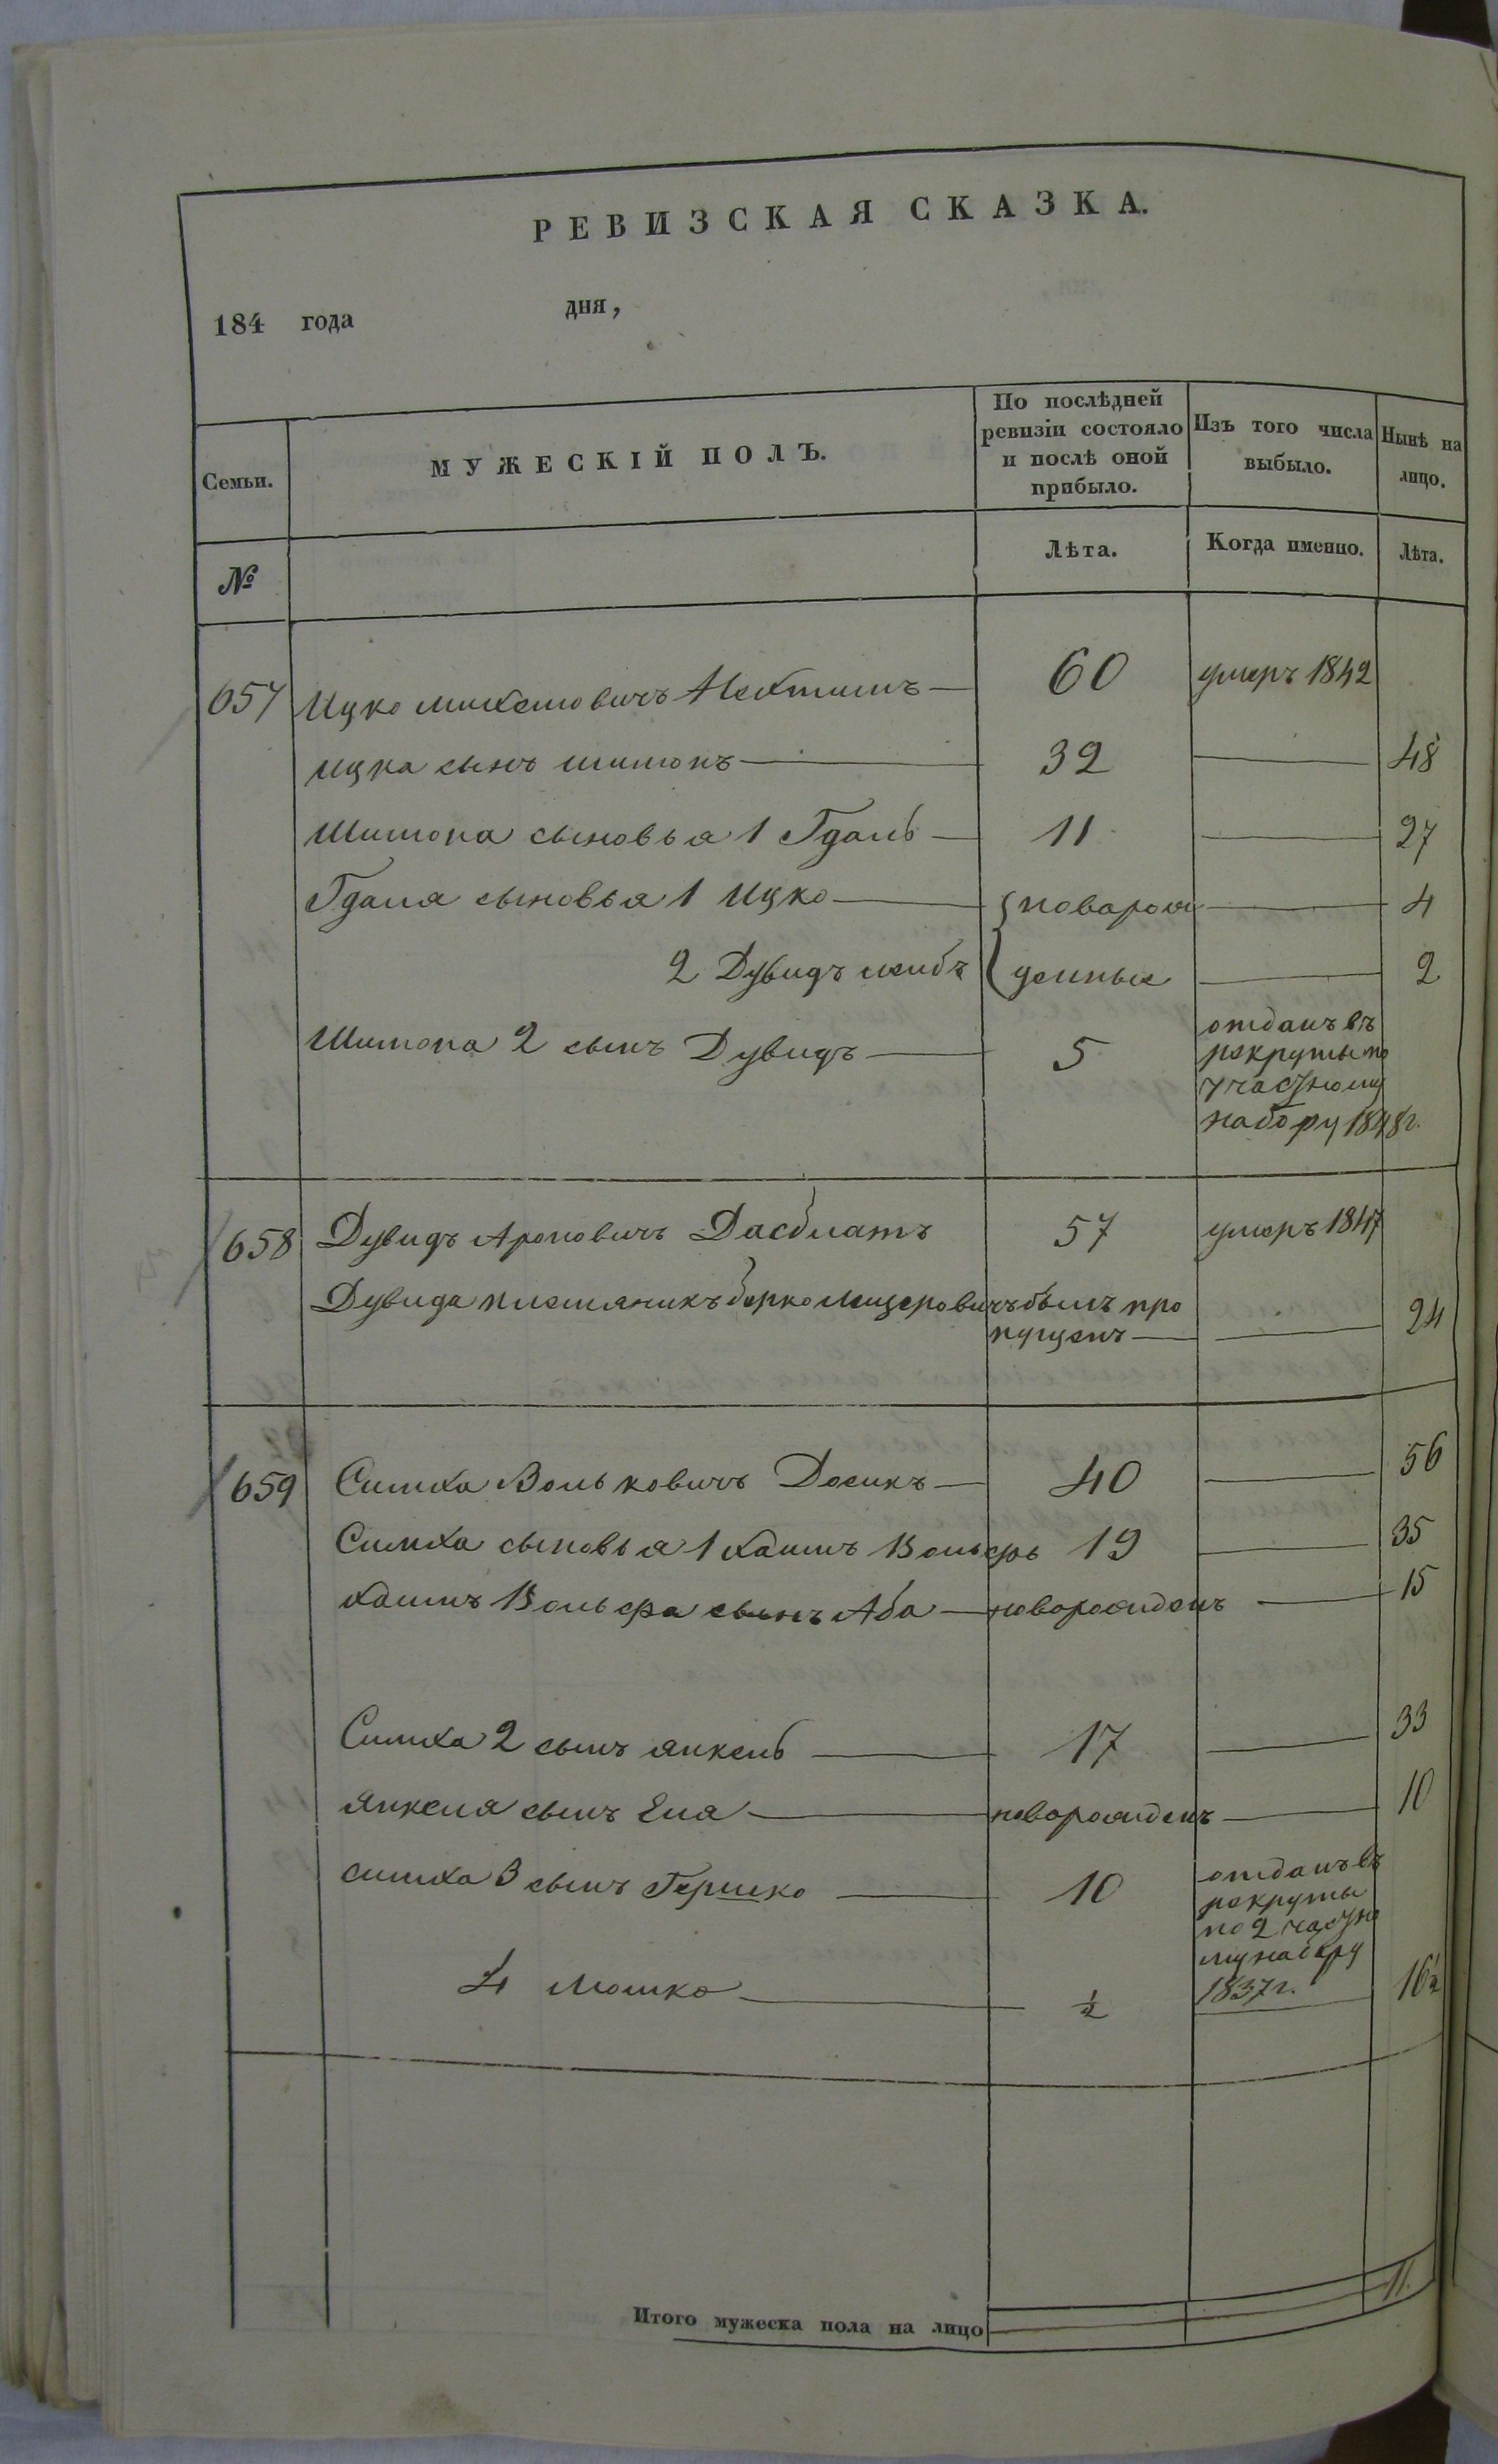 РЕВИЗСКАЯ СКАЗКА.
184 года дня,
Семьи.
МУЖЕСКІЙ ПОЛЪ.
По послѣдней ревизіи состояло и послѣ оной прибыло.
Изъ того числа выбыло.
Нынѣ на лицо.
№
Лѣта.
Когда именно.
Лѣта.
657 Ицко Михелевичъ 60 умеръ 1842
Ицка сынъ Шимонъ 32 48
Шимона сыновья 1 Гдаль 11 27
Гдаля сыновья 1 Ицко новорож 4
2 Дувидъ Лейбъ денные 2
Шимона 2 сынъ Дувидъ 5 отданъ въ
рекруты по
7 частному
набору 1848 г.
658 Дувидъ Ароновичъ Дасблатъ 57 умеръ 1847
Дувида племяникъ Берко Лейзеровичъ былъ про
пущенъ 24
659 Симха Вольковичъ Досикъ 40 56
Симха сыновья 1 Хаимъ Вольфъ 19 35
Хаимъ Вольфа сынъ Аба новорожденъ 15
Симха 2 сынъ Янкель 17 33
Янкеля сынъ Еля новорожденъ 10
Симха 3 сынъ Гершко 10 отданъ въ
рекруты
по 2 частно
му набору
1837 г.
4 Мошко ½ 16½
Итого мужеска пола на лицо 11.